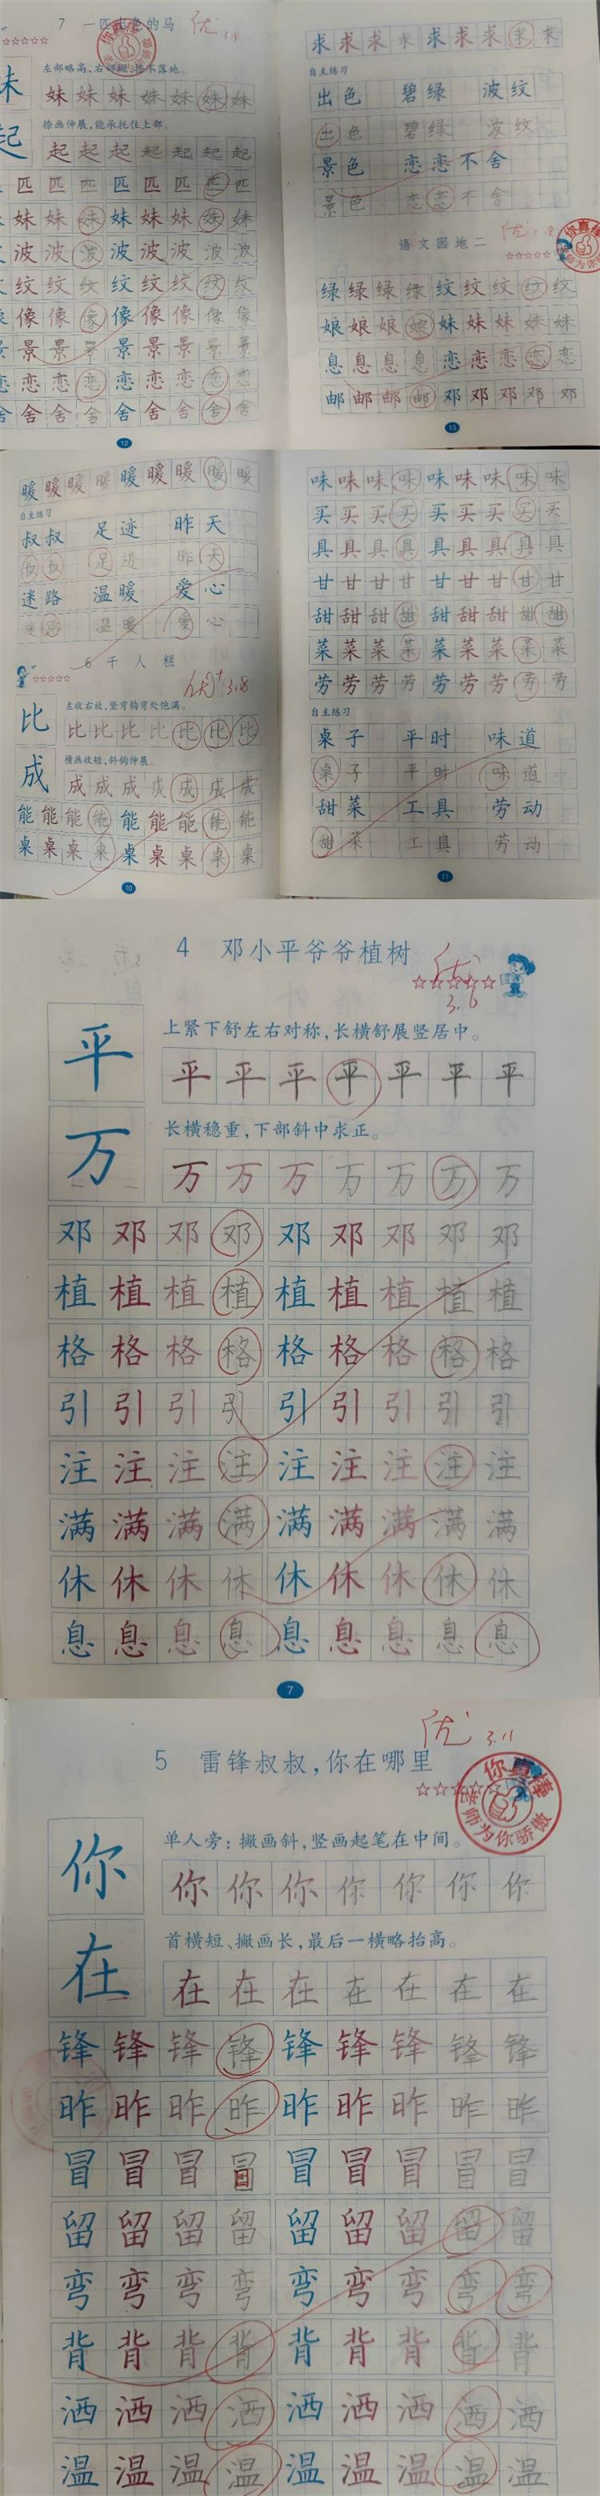 7 一匹出色的马 优
左部略高,右部
妹妹妹妹妹妹妹
捺画伸展,能承托住上部。
起起起起起起起
匹匹匹匹匹匹匹匹
妹妹妹妹妹妹妹妹
波波波波波波波波
纹纹纹纹纹纹纹纹
像像像像像像像像
景景景景景景景景
恋恋恋恋恋恋恋恋
舍舍舍舍舍舍舍舍
12
求求求求求求求求求
自主练习
出色 碧绿 波纹
出色 碧绿 波纹
景色 恋恋不舍
景色 恋恋不舍
语文园地二 优
绿绿绿绿纹纹纹纹纹
娘娘娘娘妹妹妹妹妹
息息息息恋恋恋恋恋
邮邮邮邮邓邓邓邓邓
13
暖暖暖暖暖暖暖暖暖
自主练习
叔叔 足迹 昨天
叔叔 足迹 昨天
迷路 温暖 爱心
迷路 温暖 爱心
6 千人糕
优+ 3.8
比 左收右放,竖弯钩弯处饱满。
比比比比比比比
成 横画收短,斜钩伸展。
成成成成成成成
能能能能能能能能能
桌桌桌桌桌桌桌桌桌
10
味味味味味味味味味
买买买买买买买买买
具具具具具具具具具
甘甘甘甘甘甘甘甘甘
甜甜甜甜甜甜甜甜甜
菜菜菜菜菜菜菜菜菜
劳劳劳劳劳劳劳劳劳
自主练习
桌子 平时 味道
桌子 平时 味道
甜菜 工具 劳动
甜菜 工具 劳动
11
4 邓小平爷爷植树 优
3.6
平 上紧下舒左右对称,长横舒展竖居中。
平平平平平平平
万 长横稳重,下部斜中求正。
万万万万万万万
邓邓邓邓邓邓邓邓邓
植植植植植植植植植
格格格格格格格格格
引引引引引引引引引
注注注注注注注注注
满满满满满满满满满
休休休休休休休休休
息息息息息息息息息
7
优 3.11
5 雷锋叔叔,你在哪里
你真棒
老师为你骄傲
你 单人旁:撇画斜,竖画起笔在中间。
你你你你你你你
在 首横短、撇画长,最后一横略抬高。
在在在在在在在
锋锋锋锋锋锋锋锋锋
昨昨昨昨昨昨昨昨昨
冒冒冒冒冒冒冒冒冒
留留留留留留留留留
弯弯弯弯弯弯弯弯弯
背背背背背背背背背
洒洒洒洒洒洒洒洒洒
温温温温温温温温温